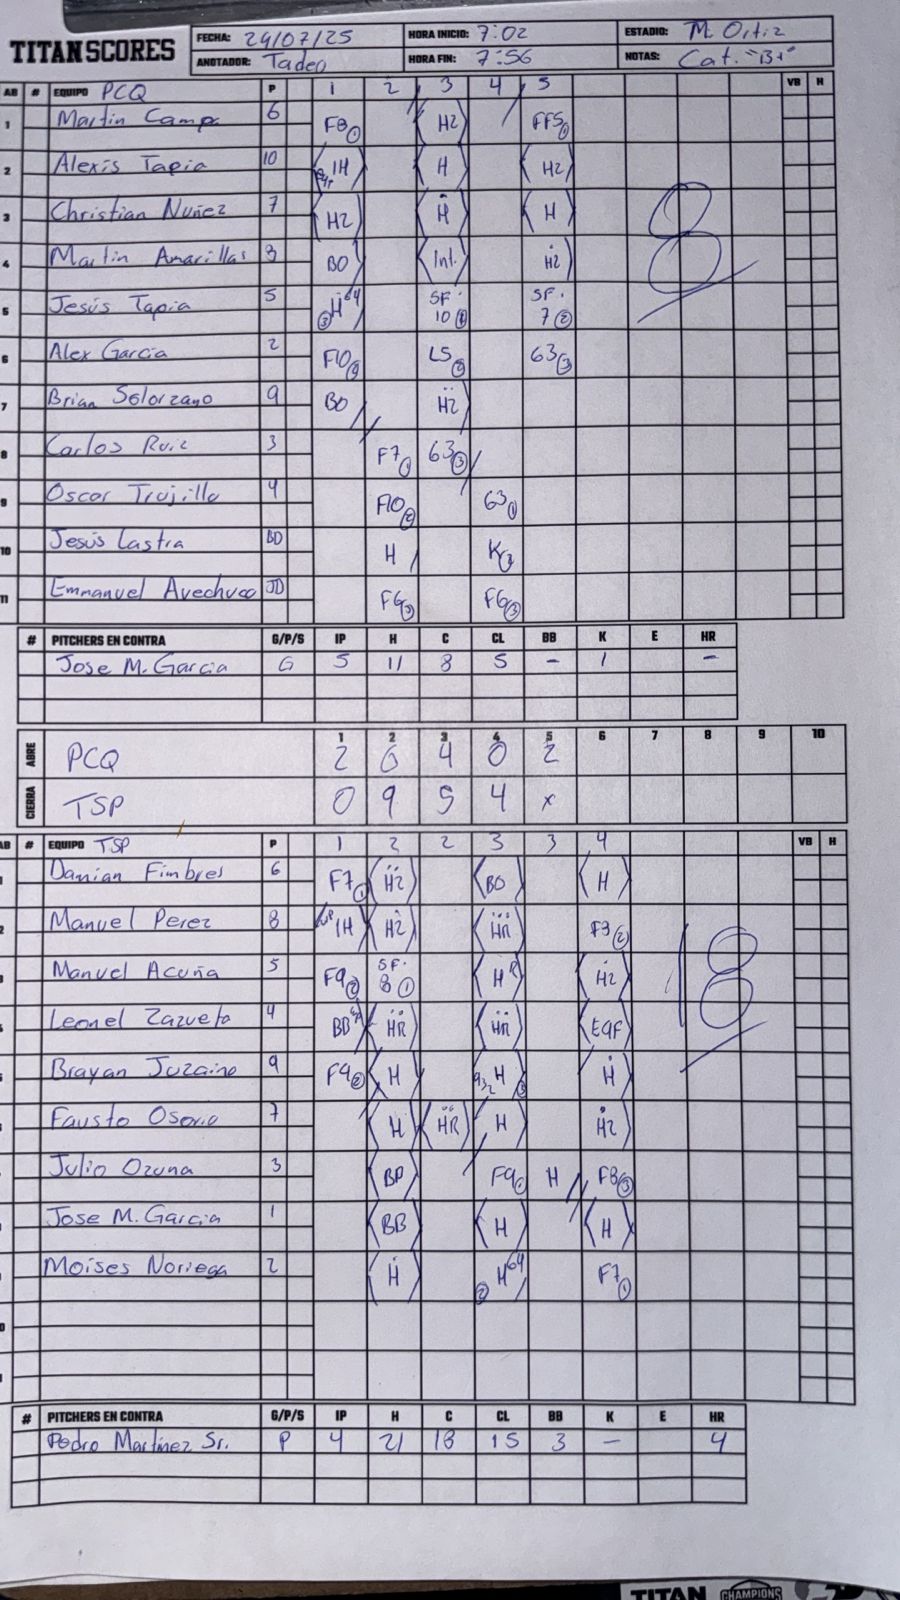 TITANSCORES
FECHA: 29/07/25 HORA INICIO: 7:02 ESTADIO: M. Ortiz
ANOTADOR: Tadeo HORA FIN: 7:56 NOTAS: Cat. "B+"
AB # EQUIPO PCQ P 1 2 3 4 5 VB H
1 Martin Camp 6 F8 1 H2 FF5 1
2 Alexis Tapia 10 1H H H2
3 Christian Nuñez 7 H2 H H
4 Martin Amarillas 8 BO Int. H2
5 Jesús Tapia 5 3 H 64 SF. 10 1 SF. 7 2
6 Alex Garcia 2 F10 L5 2 63 3
7 Brian Solorzano 9 BO H2
8 Carlos Ruiz 3 F7 1 63 3
9 Oscar Trujillo 4 F10 2 63 1
10 Jesús Lastra BD H K 2
11 Emmanuel Avechuco JD F6 3 F6 3
8
# PITCHERS EN CONTRA G/P/S IP H C CL BB K E HR
Jose M. Garcia G 5 11 8 5 - 1 -
1 2 3 4 5 6 7 8 9 10
ABRE PCQ 2 0 4 0 2
CIERRA TSP 0 9 5 4 x
AB # EQUIPO TSP P 1 2 2 3 3 4 VB H
Damian Fimbres 6 F7 1 H2 BO H
Manuel Perez 8 1H H2 HR F3 2
Manuel Acuña 5 F9 2 SF. 8 1 H R H2
Leonel Zazueta 4 BB HR HR E9F
Brayan Juzaino 9 F4 H H H
Fausto Osorio 7 H HR H H2
Julio Ozuna 3 BB F9 1 H F8 3
Jose M. Garcia 1 BB H H
Moises Noriega 2 H 2 H 64 F7 1
18
# PITCHERS EN CONTRA G/P/S IP H C CL BB K E HR
Pedro Martinez Sr. P 4 21 18 15 3 - 4
TITAN CHAMPIONS